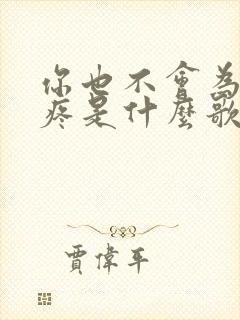 你也不會為
疼是什麼歌
賈偉平